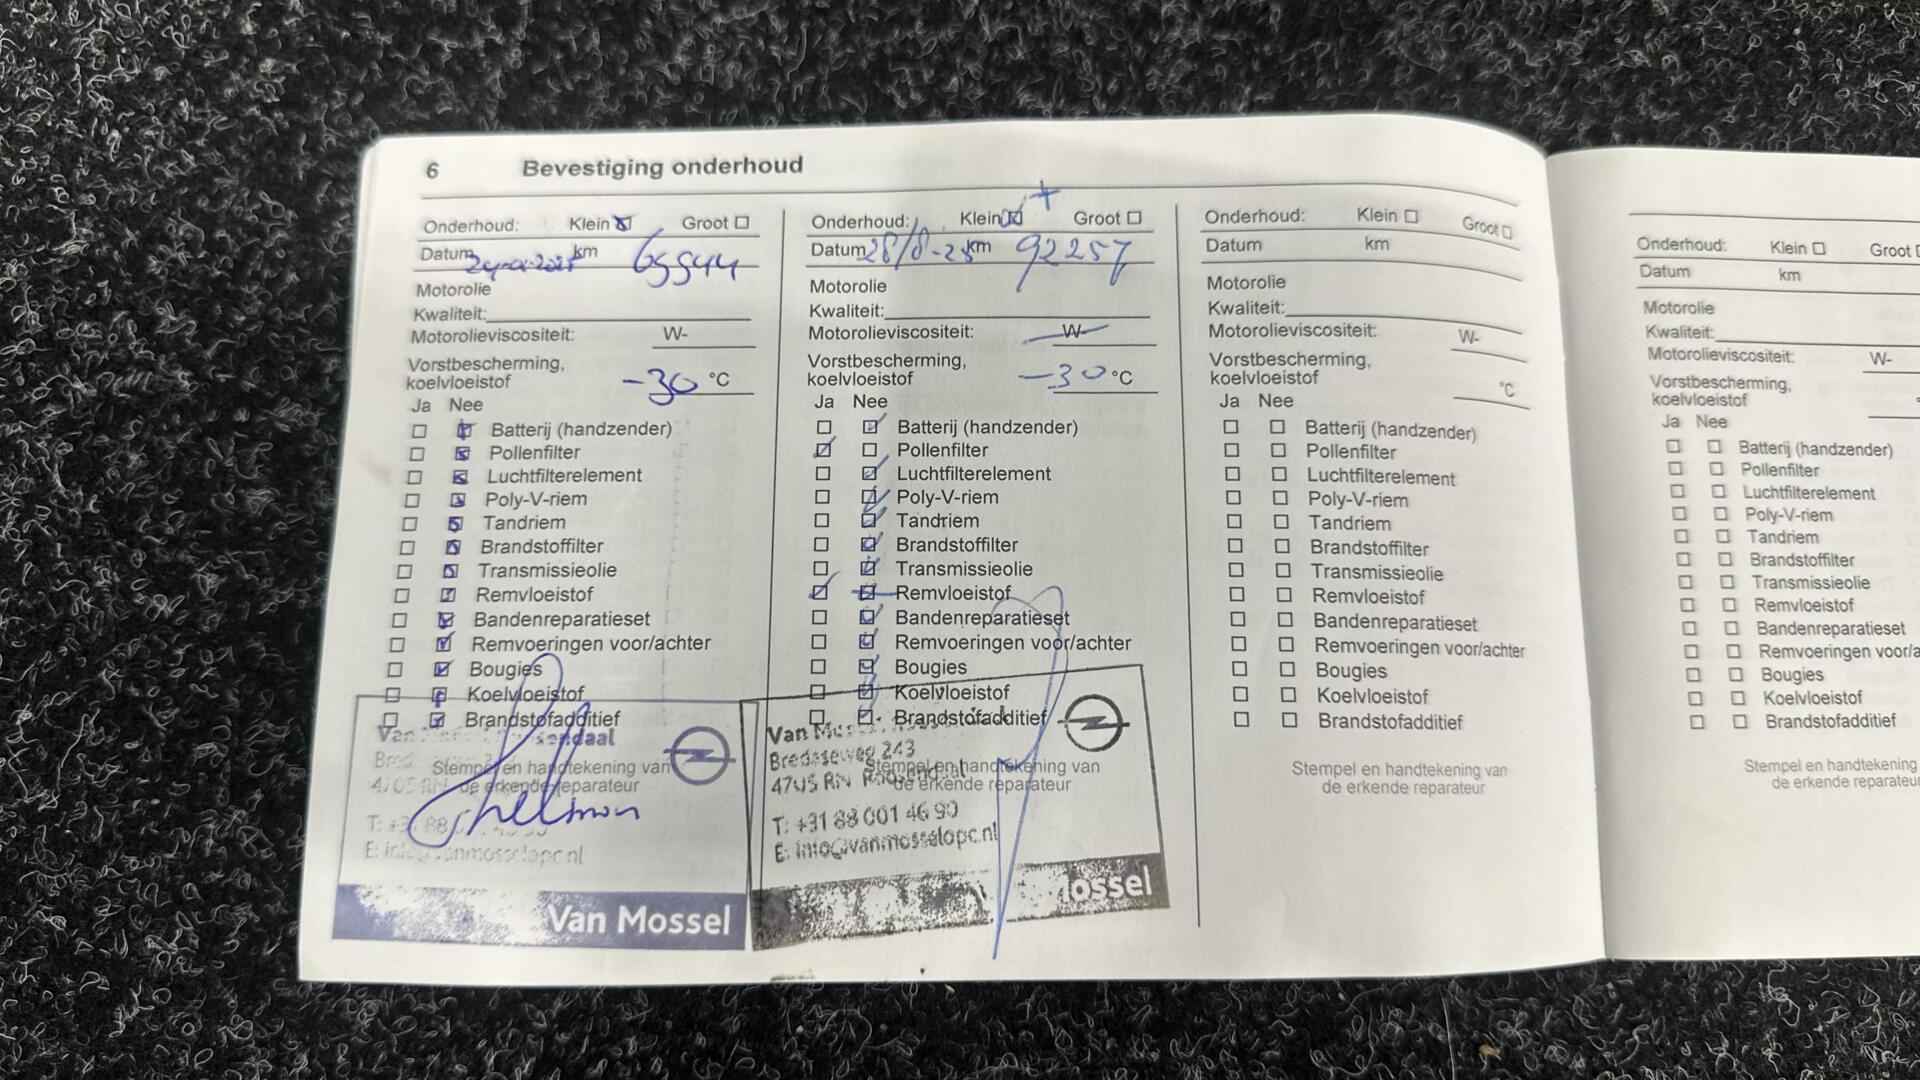 6 Bevestiging onderhoud
Onderhoud: Klein Groot
Datum km
Motorolie
Kwaliteit:
Motorolieviscositeit: W-
Vorstbescherming,
koelvloeistof -30 °C
Ja Nee
Batterij (handzender)
Pollenfilter
Luchtfilterelement
Poly-V-riem
Tandriem
Brandstoffilter
Transmissieolie
Remvloeistof
Bandenreparatieset
Remvoeringen voor/achter
Bougies
Koelvloeistof
Brandstofadditief
Stempel en handtekening van
de erkende reparateur
Van Mossel
Onderhoud: Klein + Groot
Datum 28/8-25 km 92257
Motorolie
Kwaliteit:
Motorolieviscositeit: W-
Vorstbescherming,
koelvloeistof -30 °C
Ja Nee
Batterij (handzender)
Pollenfilter
Luchtfilterelement
Poly-V-riem
Tandriem
Brandstoffilter
Transmissieolie
Remvloeistof
Bandenreparatieset
Remvoeringen voor/achter
Bougies
Koelvloeistof
Brandstofadditief
Stempel en handtekening van
de erkende reparateur
Van
Bredaseweg 243
4705 RN Roosendaal
T: +31 88 001 46 90
E: info@vanmosselopc.nl
Mossel
Onderhoud: Klein Groot
Datum km
Motorolie
Kwaliteit:
Motorolieviscositeit: W-
Vorstbescherming,
koelvloeistof °C
Ja Nee
Batterij (handzender)
Pollenfilter
Luchtfilterelement
Poly-V-riem
Tandriem
Brandstoffilter
Transmissieolie
Remvloeistof
Bandenreparatieset
Remvoeringen voor/achter
Bougies
Koelvloeistof
Brandstofadditief
Stempel en handtekening van
de erkende reparateur
Onderhoud: Klein Groot
Datum km
Motorolie
Kwaliteit:
Motorolieviscositeit: W-
Vorstbescherming,
koelvloeistof
Ja Nee
Batterij (handzender)
Pollenfilter
Luchtfilterelement
Poly-V-riem
Tandriem
Brandstoffilter
Transmissieolie
Remvloeistof
Bandenreparatieset
Remvoeringen voor/a
Bougies
Koelvloeistof
Brandstofadditief
Stempel en handtekening
de erkende reparateu